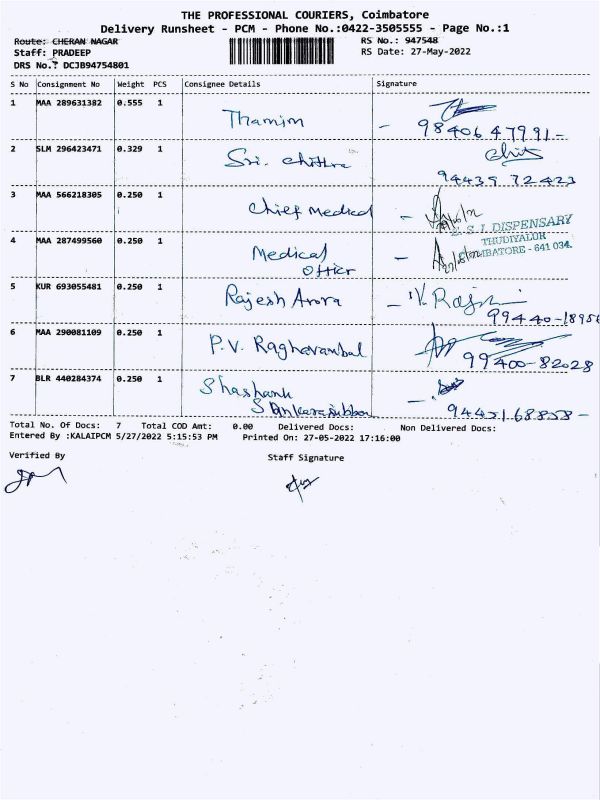 THE PROFESSIONAL COURIERS, Coimbatore
Delivery Runsheet - PCM - Phone No.:0422-3505555 - Page No.:1
Route: CHERAN NAGAR RS No.: 947548
Staff: PRADEEP RS Date: 27-May-2022
DRS No.: DCJB94754801
S No Consignment No Weight PCS Consignee Details Signature
1 MAA 289631382 0.555 1 Thamim
9840647991-
2 SLM 296423471 0.329 1 Sri. Chithra
94439 72423
3 MAA 566218305 0.250 1 Chief Medical
E. S. I. DISPENSARY
THUDIYALUR
COIMBATORE - 641 034.
4 MAA 287499560 0.250 1 Medical
Officer
5 KUR 693055481 0.250 1 Rajesh Arora
99440-18956
6 MAA 290081109 0.250 1 P.V. Raghavambal
99400-82028
7 BLR 440284374 0.250 1 Shashank
Sankarasubbon
9445168858-
Total No. Of Docs: 7 Total COD Amt: 0.00 Delivered Docs: Non Delivered Docs:
Entered By :KALAIPCM 5/27/2022 5:15:53 PM Printed On: 27-05-2022 17:16:00
Verified By Staff Signature